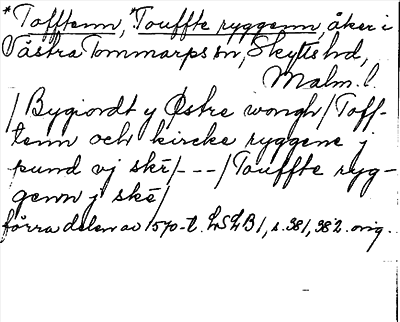 *Tofftenn, *Touffte ryggenn, åker i
Västra Tommarps sn, Skytts hd,
Malm. l.
/Bygiordt y Østre wongh/Toff-
tenn och kircke ryggene j
pund vj skē/---/Touffte ryg-
genn j skē/
förra delen av 1570-t. LSLB1, s. 381, 382. orig.